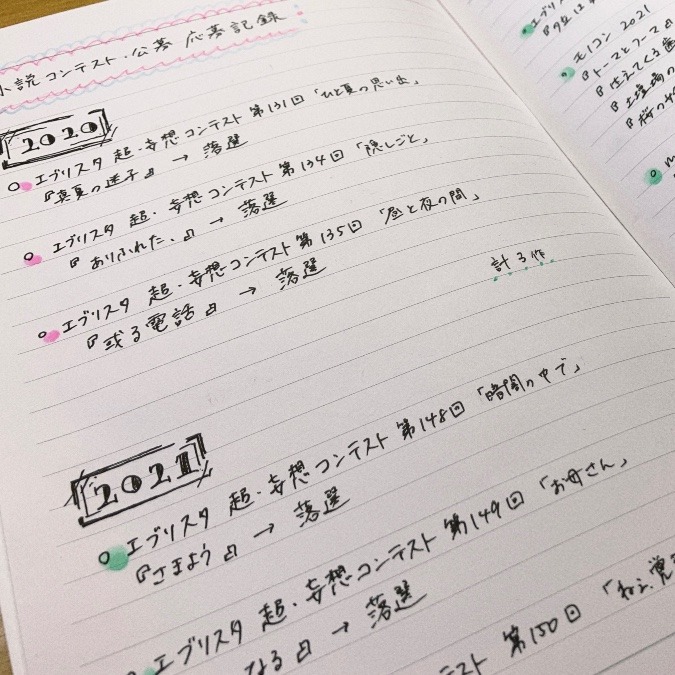 小説コンテスト・公募 応募記録
2020
エブリスタ 超・妄想コンテスト 第131回「ひと夏の思い出」
『真夏の迷子』→ 落選
エブリスタ 超・妄想コンテスト 第134回「隠しごと」
『ありふれた、』→ 落選
エブリスタ 超・妄想コンテスト 第135回「昼と夜の間」
『或る電話』→ 落選
計3作
2021
エブリスタ 超・妄想コンテスト 第148回「暗闇の中で」
『さまよう』→ 落選
エブリスタ 超・妄想コンテスト 第149回「お母さん」
なる』→ 落選
テスト 第150回「ねえ、覚
エブリス
モノコン2021
『トーマとマーマ
『生えてくる歯
『土壇場の
『桜の